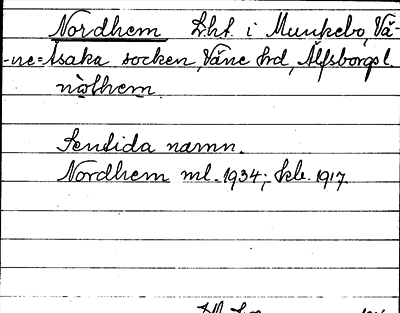 Nordhem Lht. i Munkebo, Vä-
-ne=Åsaka socken, Väne hrd, Älfsborgs l.
nòłhem.
Sentida namn.
Nordhem ml. 1934; skb. 1917.